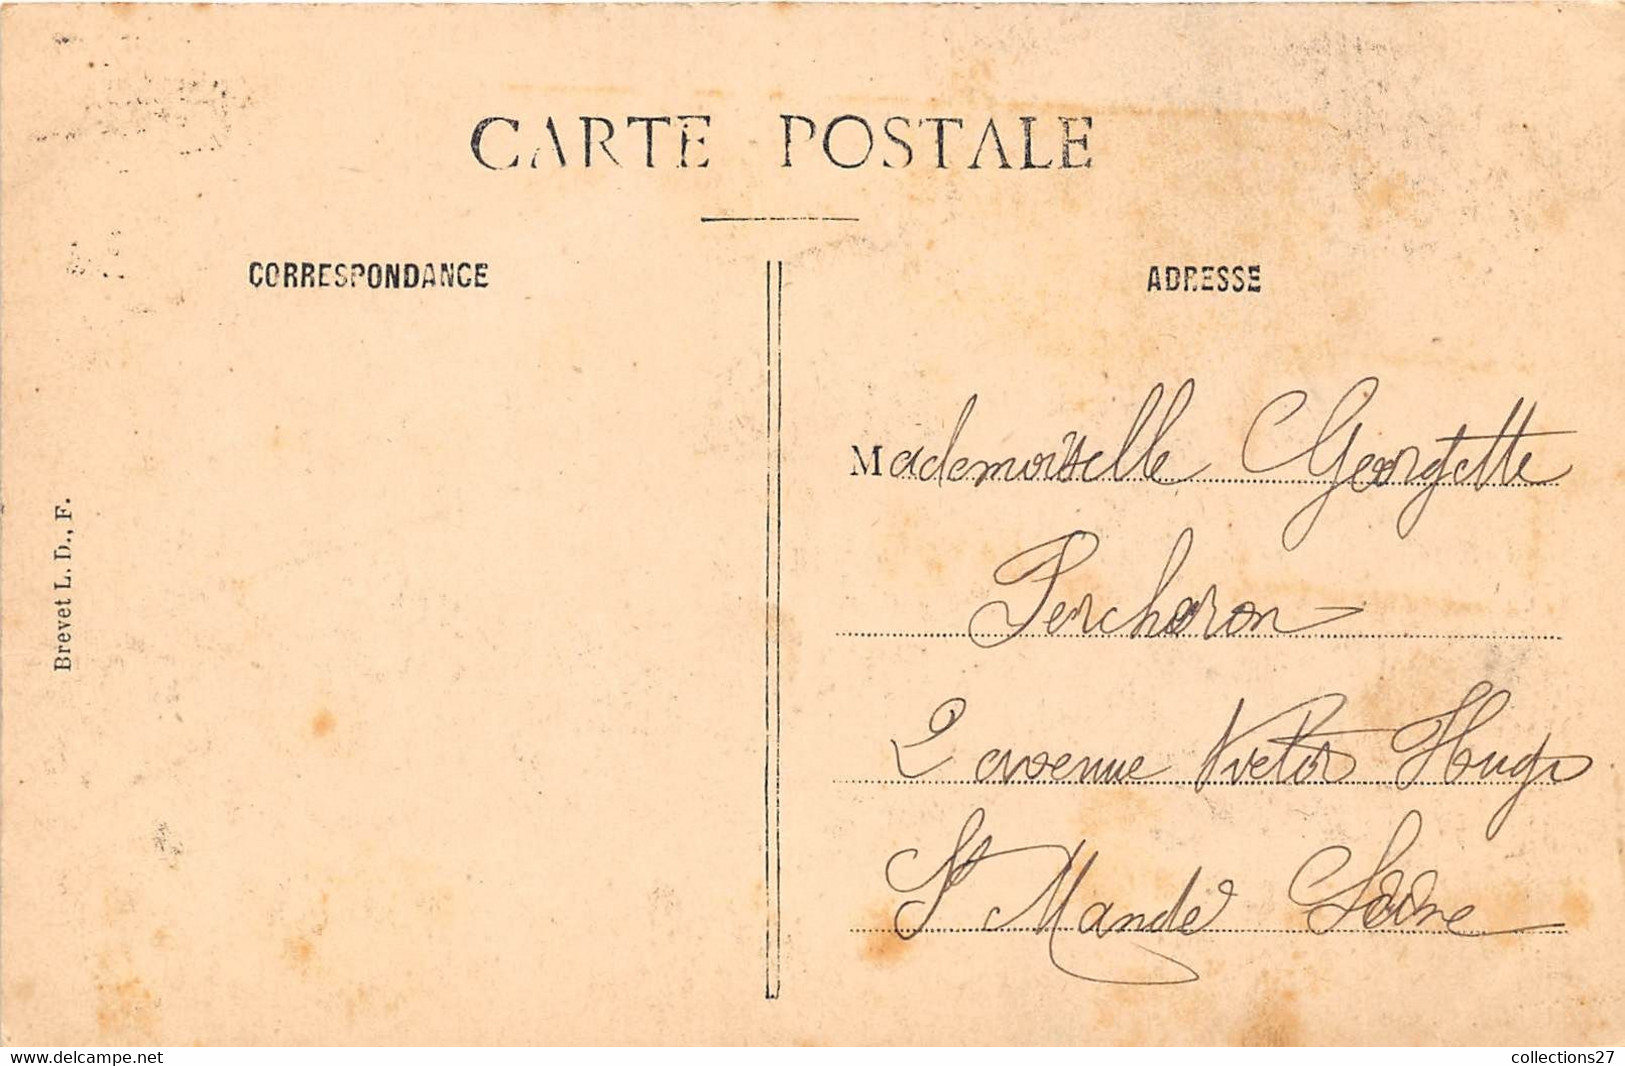 CARTE POSTALE
CORRESPONDANCE
ADRESSE
Mademoiselle Georgette
Percheron
2 avenue Victor Hugo
St Mandé Seine
Brevet L. D., F.
www.delcampe.net
collections27